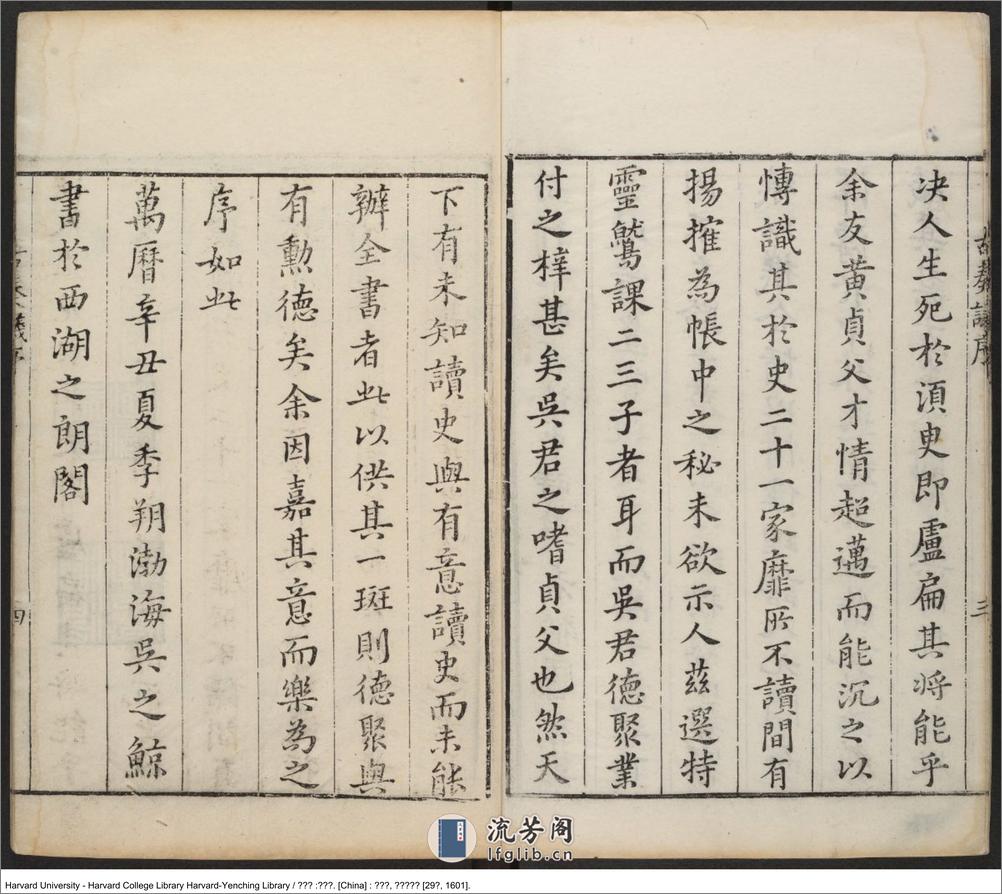 决人生死於湏臾即盧扁其将能乎
余友黄貞父才情超邁而能沉之以
愽識其於史二十一家靡所不讀間有
揚搉為帳中之秘未欲示人兹選特
靈鷲課二三子者耳而吳君德聚業
付之梓甚矣吳君之嗜貞父也然天
下有未知讀史與有意讀史而未能
辦全書者此以供其一斑則德聚與
有勲德矣余因嘉其意而樂為之
序如此
萬曆辛丑夏季朔渤海吳之鯨
書於西湖之朗閣
三
四
流芳阁
lfglib.cn
Harvard University - Harvard College Library Harvard-Yenching Library / ??? :???. [China] : ???, ????? [29?, 1601].